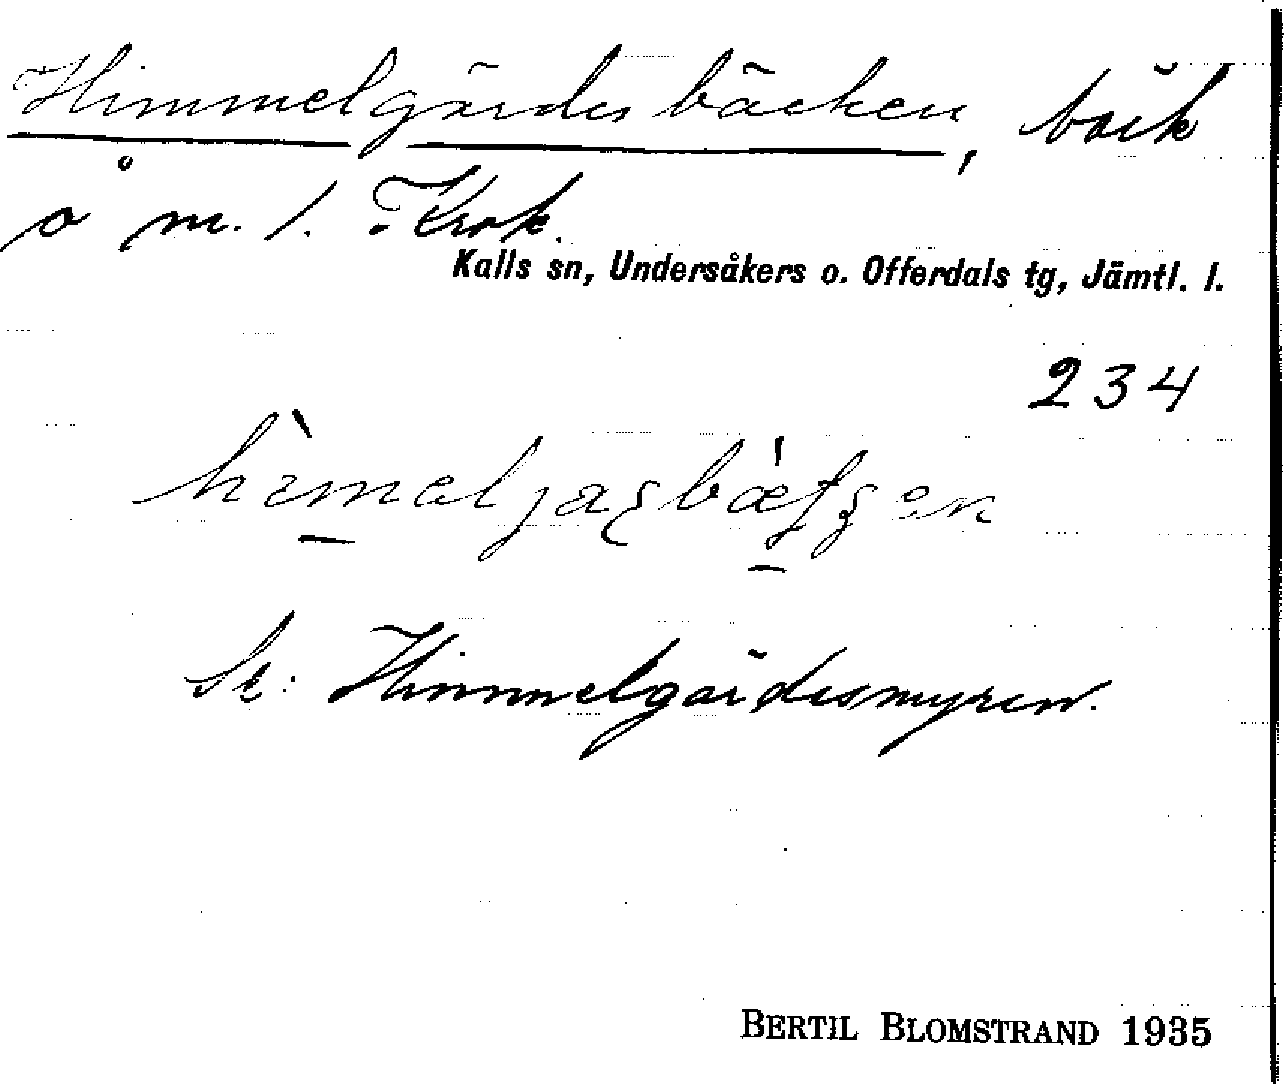 Himmelgärdesbäcken, bäck
å m. l. Krok.
Kalls sn, Undersåkers o. Offerdals tg, Jämtl. l.
234
Se: Himmelgärdesmyren.
BERTIL BLOMSTRAND 1935